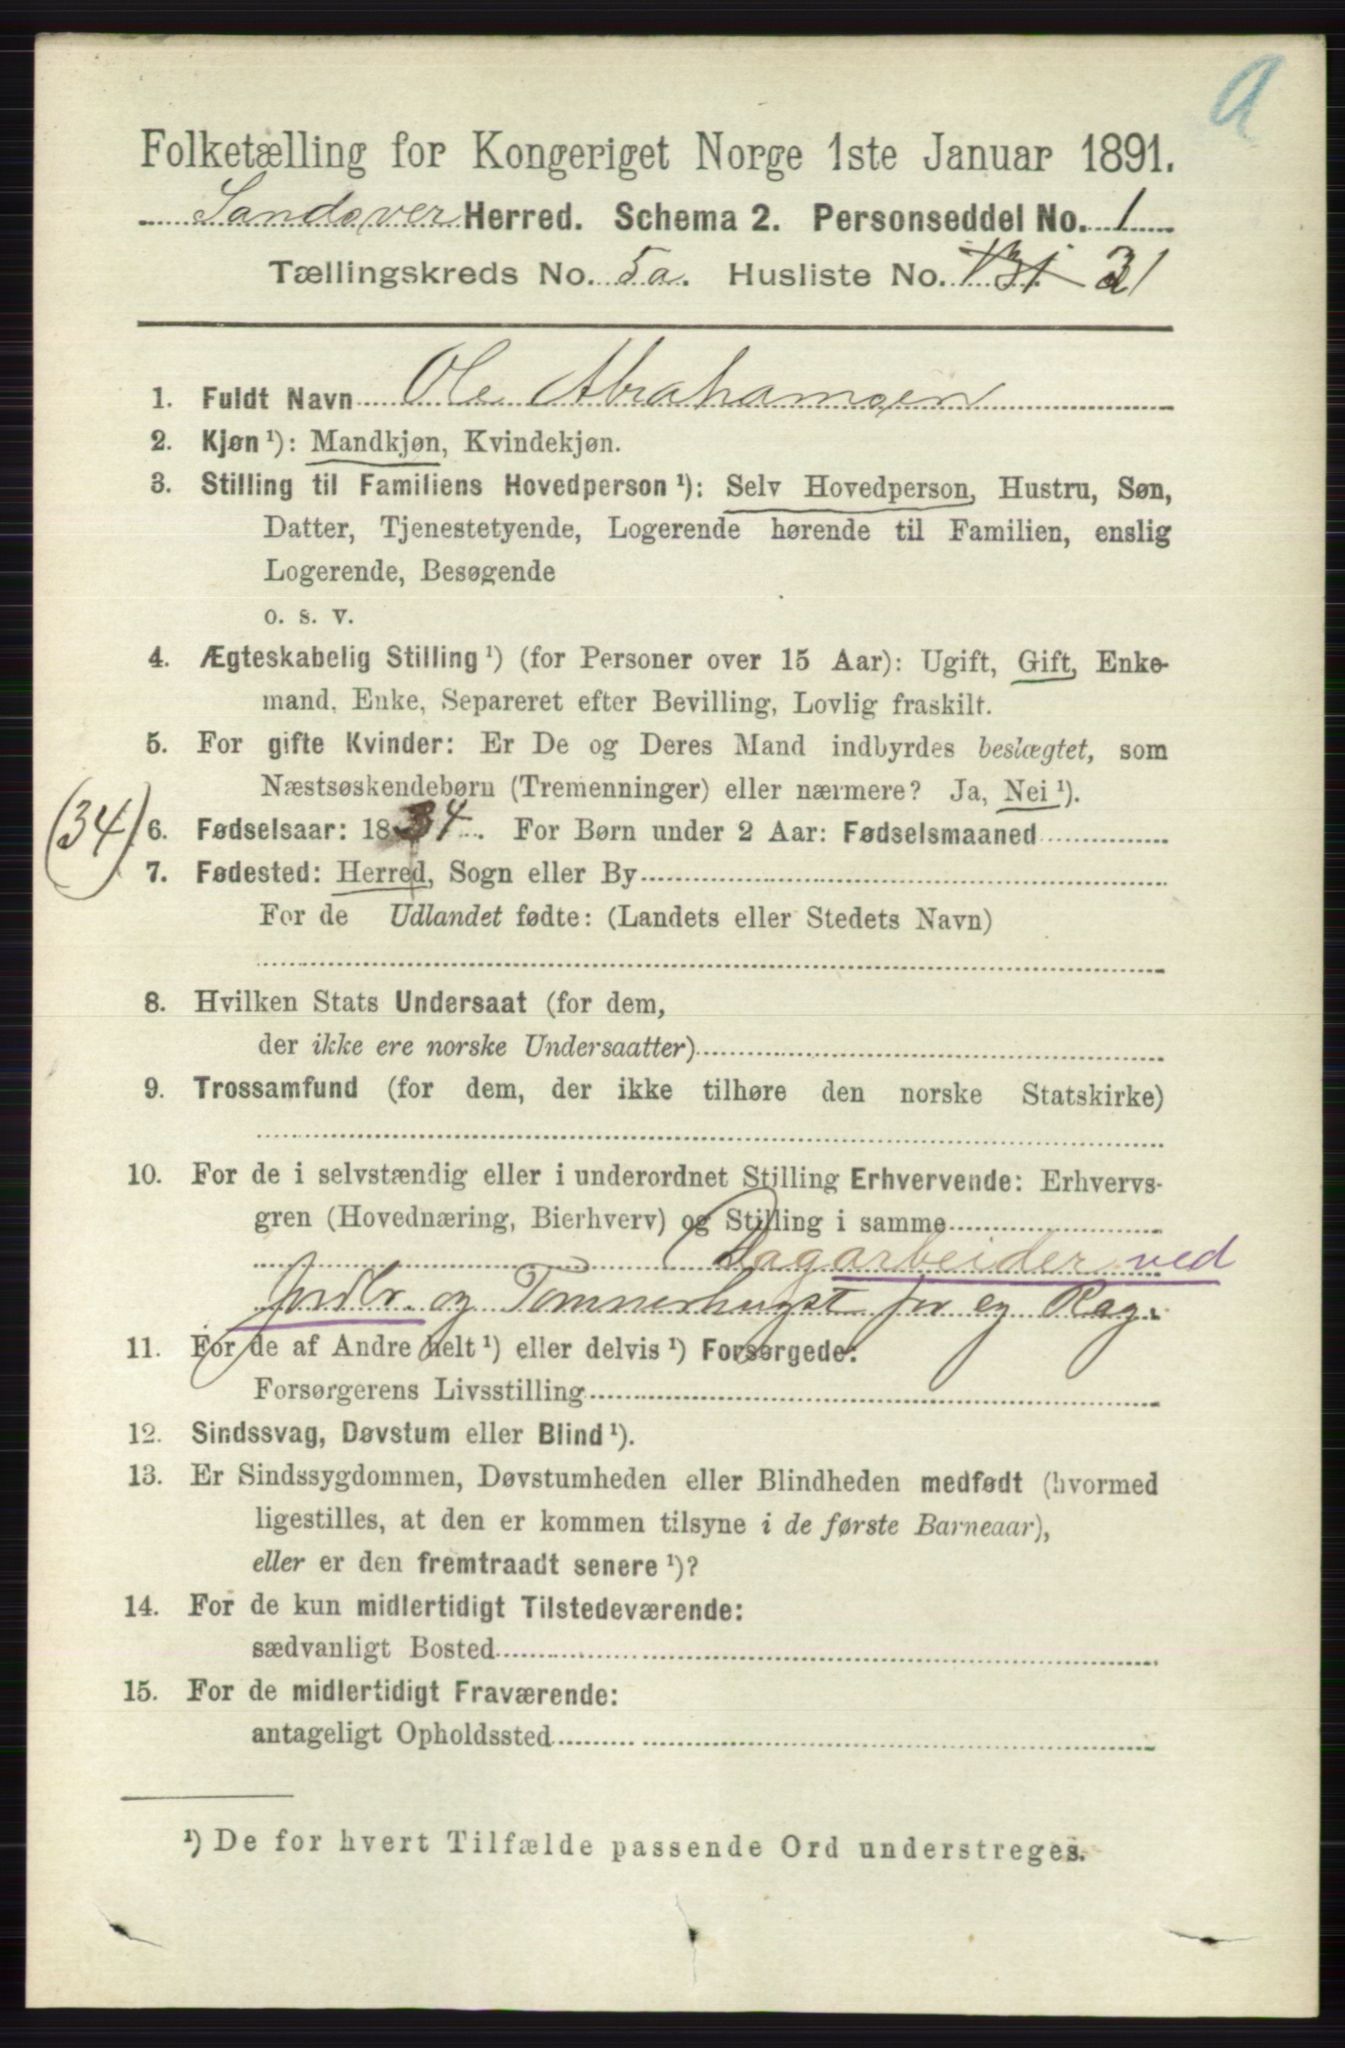 a
Folketælling for Kongeriget Norge 1ste Januar 1891.
Sandsver Herred. Schema 2. Personseddel No. 1
Tællingskreds No. 5a. Husliste No. 131. 31
1. Fuldt Navn Ole Abrahamsen
2. Kjøn ¹): Mandkjøn, Kvindekjøn.
3. Stilling til Familiens Hovedperson ¹): Selv Hovedperson, Hustru, Søn,
Datter, Tjenestetyende, Logerende hørende til Familien, enslig
Logerende, Besøgende
o. s. v.
4. Ægteskabelig Stilling ¹) (for Personer over 15 Aar): Ugift, Gift, Enke-
mand, Enke, Separeret efter Bevilling, Lovlig fraskilt.
5. For gifte Kvinder: Er De og Deres Mand indbyrdes beslægtet, som
Næstsøskendebørn (Tremenninger) eller nærmere? Ja, Nei ¹).
(34) 6. Fødselsaar: 1834. For Børn under 2 Aar: Fødselsmaaned
7. Fødested: Herred, Sogn eller By
For de Udlandet fødte: (Landets eller Stedets Navn)
8. Hvilken Stats Undersaat (for dem,
der ikke ere norske Undersaatter)
9. Trossamfund (for dem, der ikke tilhøre den norske Statskirke)
10. For de i selvstændig eller i underordnet Stilling Erhvervende: Erhvervs-
gren (Hovednæring, Bierhverv) og Stilling i samme
Dagarbeider ved
Jordbr. og Tømmerhugst for eg Rag.
11. For de af Andre helt ¹) eller delvis ¹) Forsørgede:
Forsørgerens Livsstilling
12. Sindssvag, Døvstum eller Blind ¹).
13. Er Sindssygdommen, Døvstumheden eller Blindheden medfødt (hvormed
ligestilles, at den er kommen tilsyne i de første Barneaar),
eller er den fremtraadt senere ¹)?
14. For de kun midlertidigt Tilstedeværende:
sædvanligt Bosted
15. For de midlertidigt Fraværende:
antageligt Opholdssted
¹) De for hvert Tilfælde passende Ord understreges.